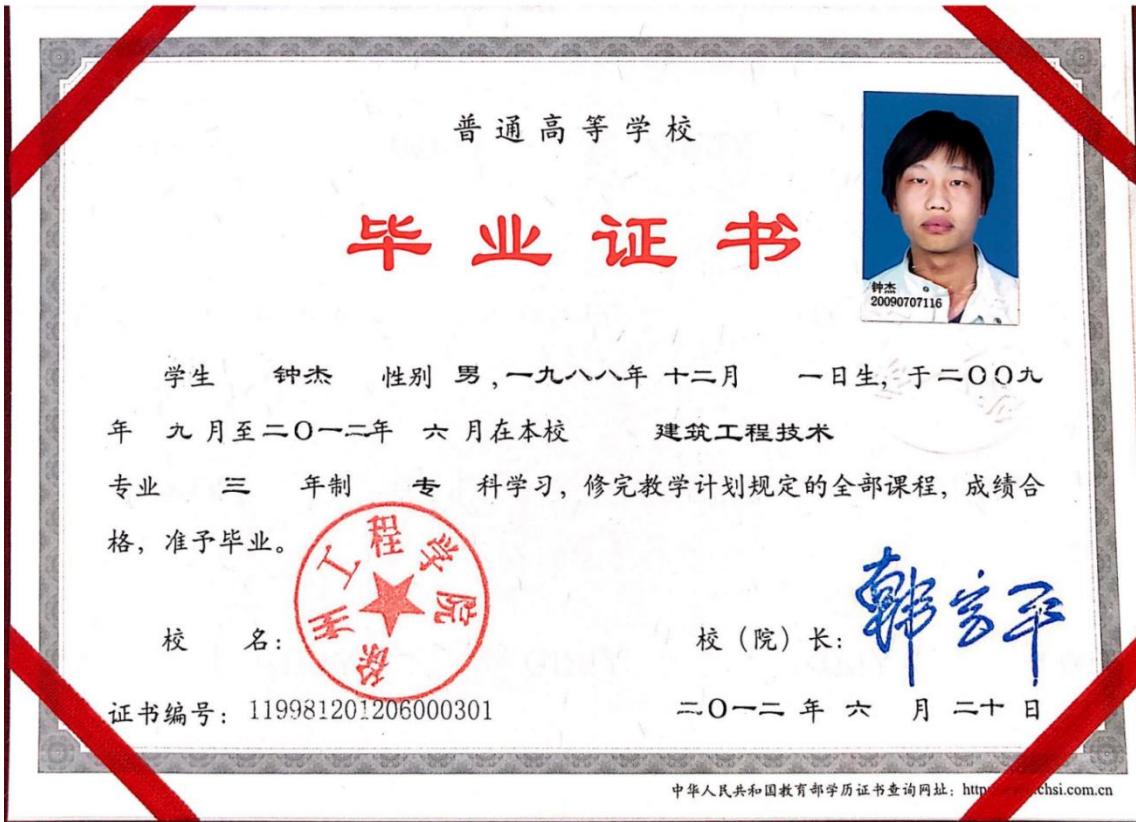 普通高等学校
毕业证书
钟杰
20090707116
学生 钟杰 性别 男,一九八八年 十二月 一日生,于二〇〇九
年 九 月至二〇一二年 六 月在本校 建筑工程技术
专业 三 年制 专 科学习,修完教学计划规定的全部课程,成绩合
格,准予毕业。
徐州工程学院
校 名:
校(院)长:
证书编号:119981201206000301
二〇一二 年 六 月 二十 日
中华人民共和国教育部学历证书查询网址:http chsi.com.cn